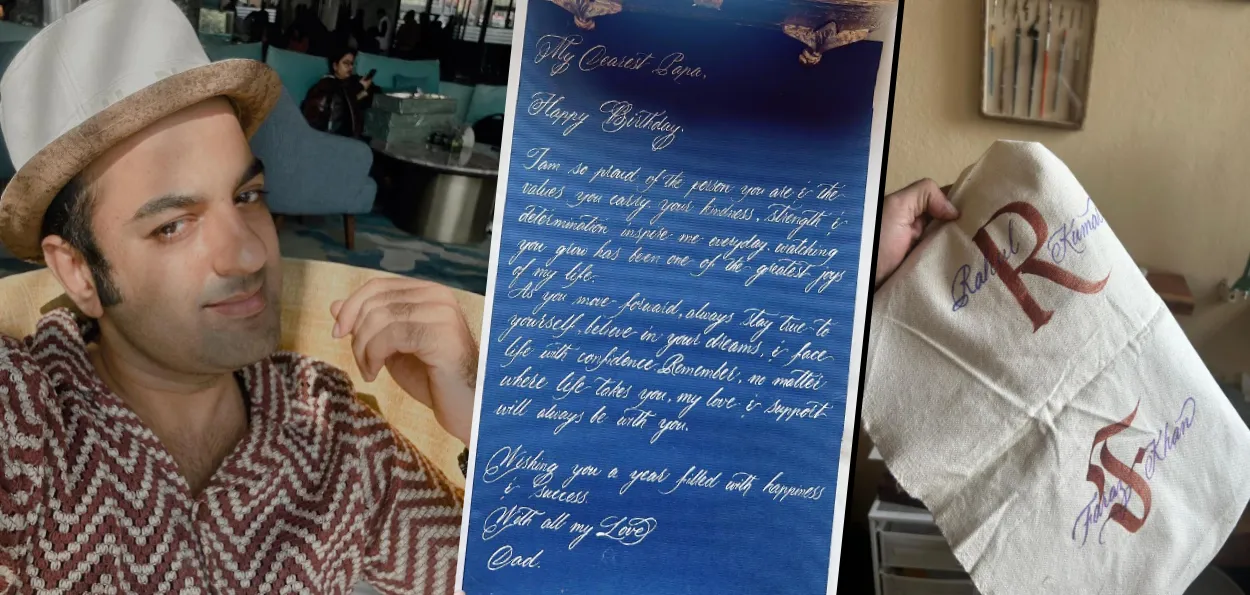 My Dearest Papa,
Happy Birthday.
I am so proud of the person you are & the
values you carry your kindness, strength &
determination inspire me everyday. watching
you grow has been one of the greatest joys
of my life.
As you move forward, always stay true to
yourself, believe in your dreams, & face
life with confidence. Remember, no matter
where life takes you, my love & support
will always be with you.
Wishing you a year filled with happiness
& success.
With all my Love
Dad.
R
Rahul Kumar
F
Faraz Khan